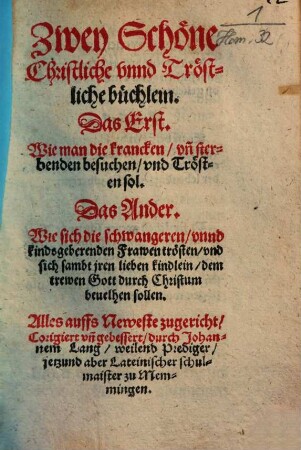 1
Hom. 32
Zwey Schöne
Christliche vnnd Tröst-
liche büchlein.
Das Erst.
Wie man die krancken / vñ ster-
benden besuchen / vnd Tröst-
en sol.
Das Ander.
Wie sich die schwangeren / vnnd
kindsgeberenden Frawen trösten / vnd
sich sambt jren lieben kindlein / dem
trewen Gott durch Christum
beuelhen sollen.
Alles auffs Neweste zugericht /
Corigiert vñ gebessert / durch Johan-
nem Lang / weilend Prediger /
jetzund aber Lateinischer schul-
maister zu Mem-
mingen.